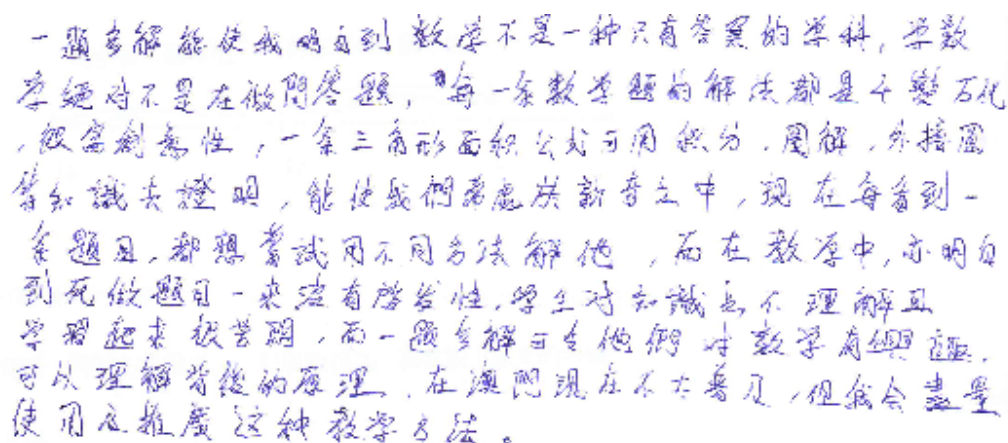 一題多解能使我明白到数学不是一种只有答案的学科,学数
学絕对不是在做問答題,每一条数学題的解法都是千變万化
,很富創意性,一条三角形面积公式可用积分.圖解.外接圓
等知識去證明,能使我們常處於新奇之中,現在每看到一
条題目,都想嘗試用不同方法解他,而在教学中,亦明白
到死做題目一来沒有啓发性,學生对知識点不理解且
学習起来很苦悶,而一題多解可令他們对数学有興趣.
可以理解背後的原理.在澳門現在不太普及,但我会盡量
使用及推廣这种教学方法。